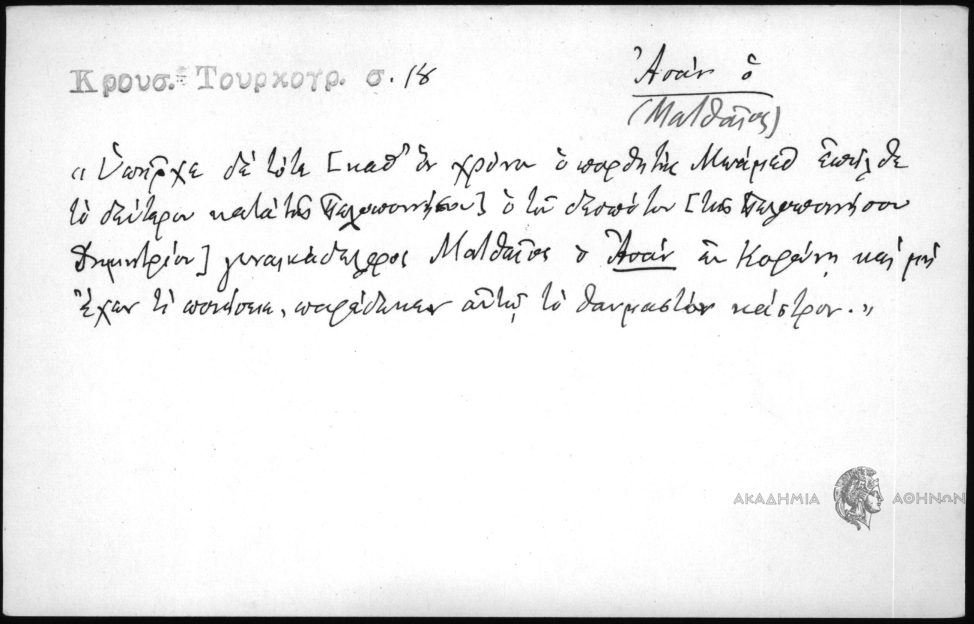 Κρουσ. Τουρκογρ. σ. 18
Ἀσάν ὁ
(Ματθαῖος)
«Ὑπῆρχε δὲ τότε [καθ' ὃν χρόνον ὁ πορθητὴς Μωάμεθ ἐπῆλθε
τὸ δεύτερον κατὰ τῆς Πελοποννήσου] ὁ τοῦ δεσπότου [τῆς Πελοποννήσου
Δημητρίου] γυναικάδελφος Ματθαῖος ὁ Ἀσάν ἐν Κορίνθῳ καὶ μὴ
ἔχων τὶ ποιήσειε, παρέδωκεν αὐτῷ τὸ θαυμαστὸν κάστρον.»
ΑΚΑΔΗΜΙΑ ΑΘΗΝΩΝ